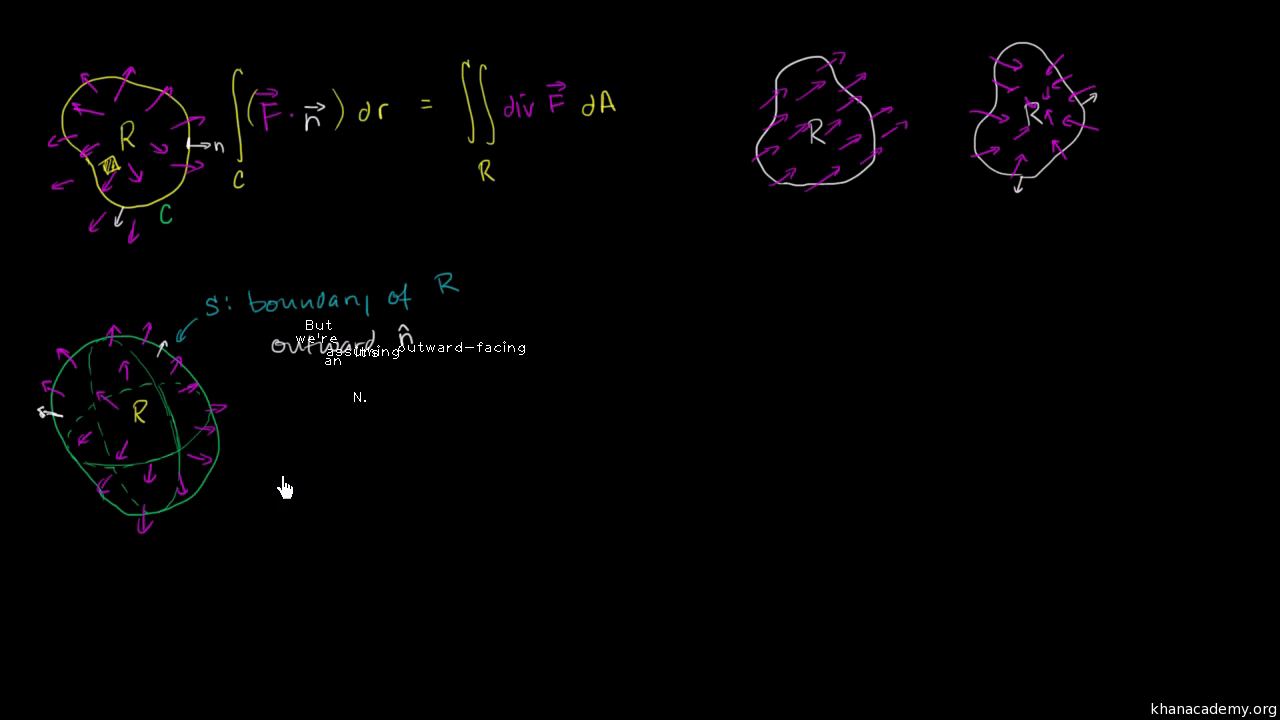 R
n
C
∫ ( F⃗ · n⃗ ) dr = ∬ div F⃗ dA
C R
R
R
S: boundary of R
outward n̂
But
we're
assuming outward-facing
an
N.
R
khanacademy.org